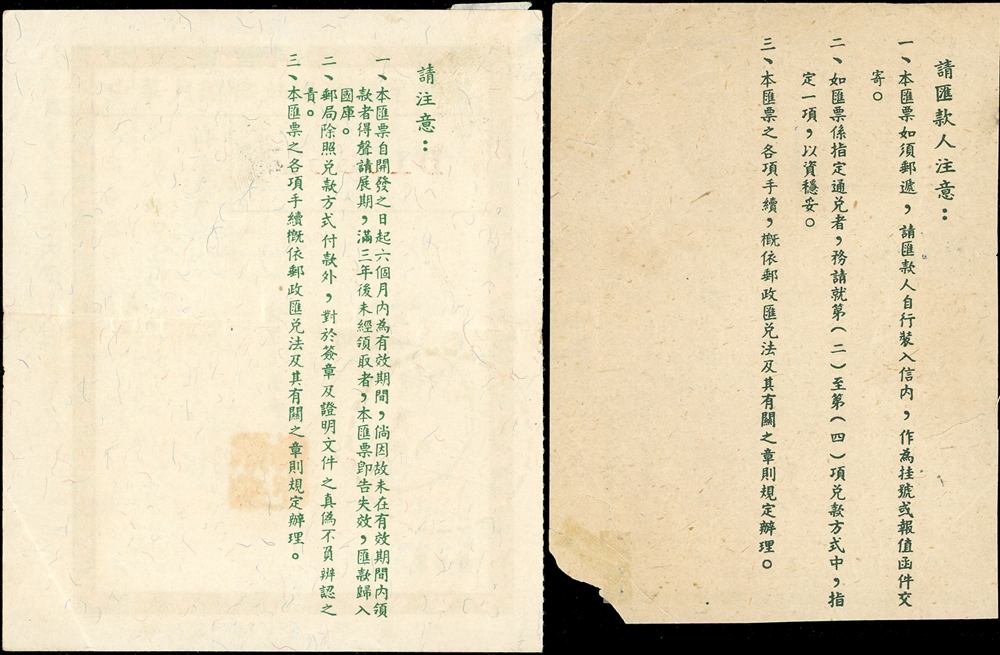 請注意：
一、本匯票自開發之日起六個月內為有效期間，倘因故未在有效期間內領
款者得聲請展期，滿三年後未經領取者，本匯票即告失效，匯款歸入
國庫。
二、郵局除照兌款方式付款外，對於簽章及證明文件之真偽不負辨認之
責。
三、本匯票之各項手續概依郵政匯兌法及其有關之章則規定辦理。
請匯款人注意：
一、本匯票如須郵遞，請匯款人自行裝入信內，作為挂號或報值函件交
寄。
二、如匯票係指定通兌者，務請就第（二）至第（四）項兌款方式中，指
定一項，以資穩妥。
三、本匯票之各項手續，概依郵政匯兌法及其有關之章則規定辦理。